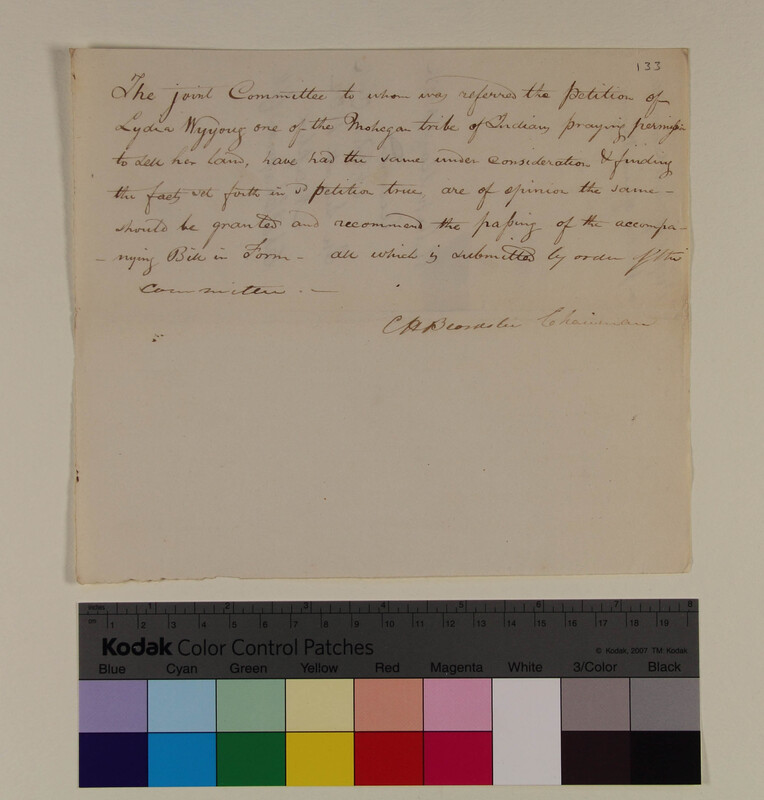 133
The joint Committee to whom was referred the Petition of
Lydia Wyyoug one of the Mohegan tribe of Indians praying permissn
to sell her land, have had the same under consideration & finding
the facts set forth in sd petition true, are of opinion the same -
should be granted and recommend the passing of the accompa-
- nying Bill in Form - all which is submitted by order of the
committee. -
Chairman
inches 1 2 3 4 5 6 7 8
cm 1 2 3 4 5 6 7 8 9 10 11 12 13 14 15 16 17 18 19
Kodak Color Control Patches
© Kodak, 2007 TM Kodak
Blue Cyan Green Yellow Red Magenta White 3/Color Black